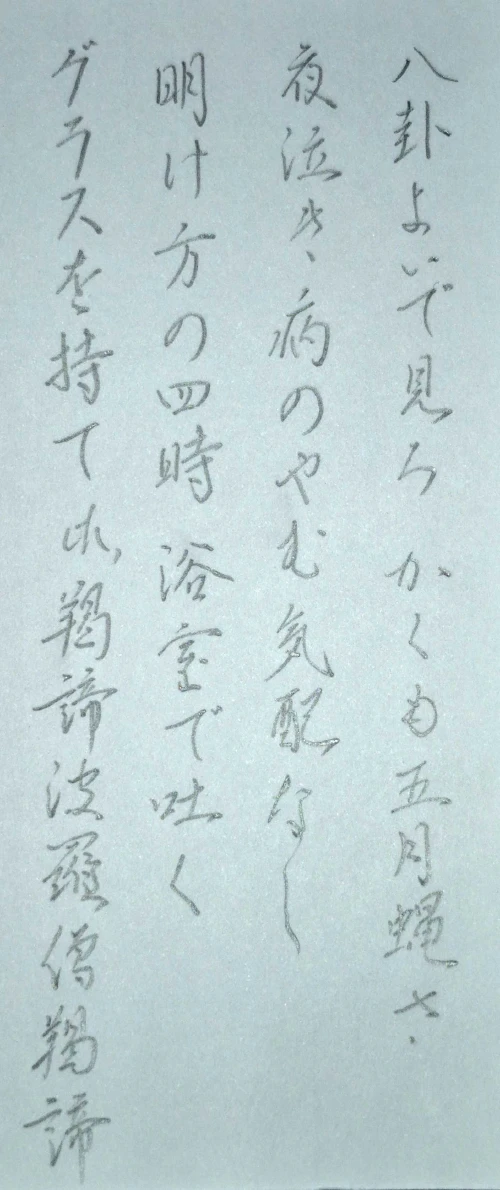 八卦よいで見ろ かくも五月蝿さ
夜泣き、病のやむ気配なし
明け方の四時 浴室で吐く
グラスを持て 此、羯諦波羅僧羯諦